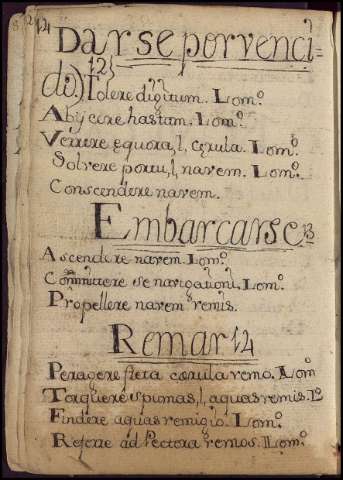 14
Darse porvenci=
do) 12} Tolere digitum. Lomº.
Abycere hastam. Lomº.
Verrere equora, l, cęrula. Lomº.
Solvere portu, l, navem. Lomº.
Conscendere navem.
Embarcarse 13
Ascendere navem. Lomº.
Committere se navigationi. Lomº.
Propellere navem remis.
Remar 14
Peragere freta cærula remo. Lomº
Torquere spumas, l, aguas remis. Lº
Findere aguas remigio. Lomº.
Referre ad Pectora remos. Lomº.